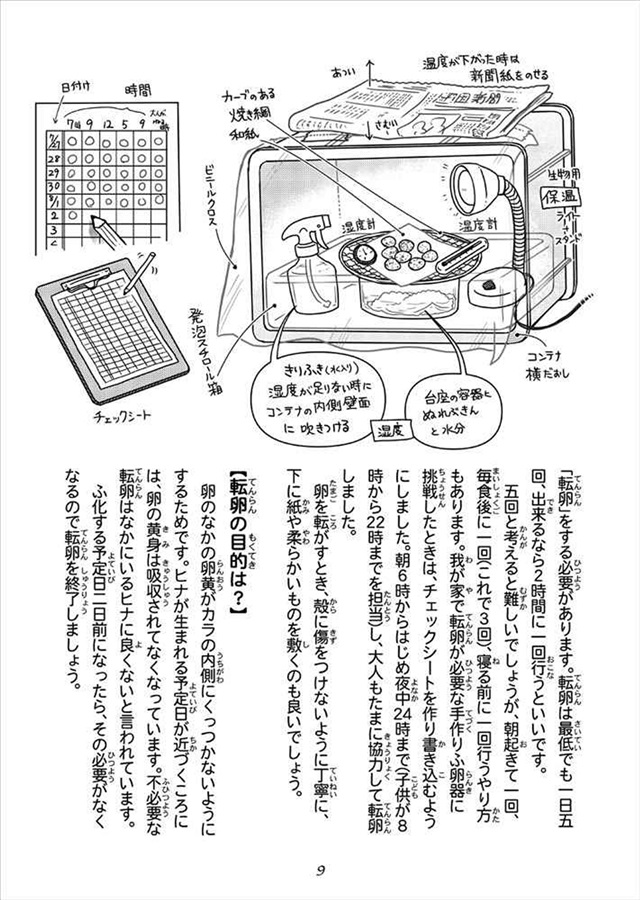 日付け
時間
7時 9 12 5 9
7/27
28
29
30
8/1
2
3
チェックシート
温度が下がった時は
新聞紙をのせる
あつい
さむい
新聞
カーブのある
焼き網
和紙
ビニールクロス
湿度計
温度計
生物用
保温
ライト
+
スタンド
発泡スチロール箱
コンテナ
横だおし
きりふき(水入り)
湿度が足りない時に
コンテナの内側壁面
に吹きつける
湿度
台座の容器に
ぬれぶきん
と水分
「転卵」をする必要があります。転卵は最低でも一日五
回、出来るなら2時間に一回行うといいです。
五回と考えると難しいでしょうが、朝起きて一回、
毎食後に一回(これで3回)、寝る前に一回行うやり方
もあります。我が家で転卵が必要な手作りふ卵器に
挑戦したときは、チェックシートを作り書き込むよう
にしました。朝6時からはじめ夜中24時まで(子供が8
時から22時までを担当)し、大人もたまに協力して転卵
しました。
卵を転がすとき、殻に傷をつけないように丁寧に、
下に紙や柔らかいものを敷くのも良いでしょう。
【転卵の目的は?】
卵のなかの卵黄がカラの内側にくっつかないように
するためです。ヒナが生まれる予定日が近づくころに
は、卵の黄身は吸収されてなくなっています。不必要な
転卵はなかにいるヒナに良くないと言われています。
ふ化する予定日二日前になったら、その必要がなく
なるので転卵を終了しましょう。
9